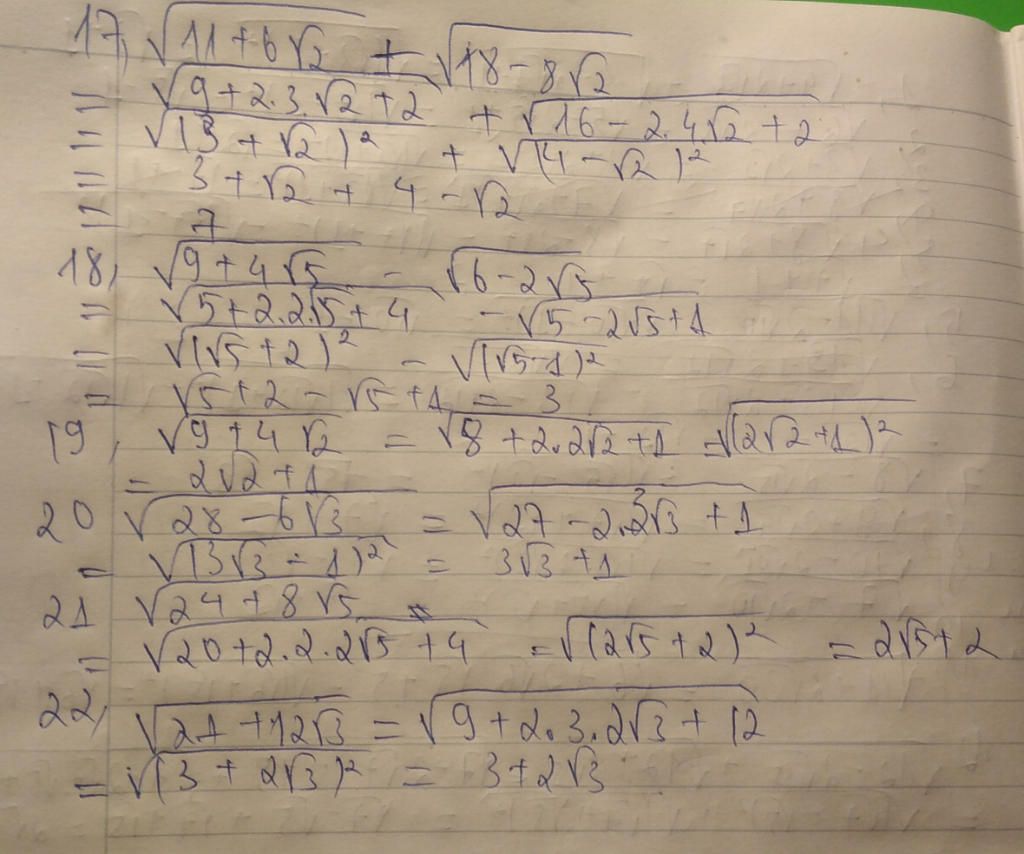 17, √(11+6√2) + √(18-8√2)
= √(9+2.3.√2+2) + √(16-2.4√2+2)
= √(3+√2)² + √(4-√2)²
= 3+√2 + 4-√2
= 7
18, √(9+4√5) - √(6-2√5)
= √(5+2.2√5+4) - √(5-2√5+1)
= √(√5+2)² - √(√5-1)²
= √5+2 - √5+1 = 3
19, √(9+4√2) = √(8+2.2√2+1) = √(2√2+1)²
= 2√2+1
20 √(28-6√3) = √(27-2.3√3+1)
= √(3√3-1)² = 3√3+1
21 √(24+8√5) =
= √(20+2.2.2√5+4) = √(2√5+2)² = 2√5+2
22, √(21+12√3) = √(9+2.3.2√3+12)
= √(3+2√3)² = 3+2√3